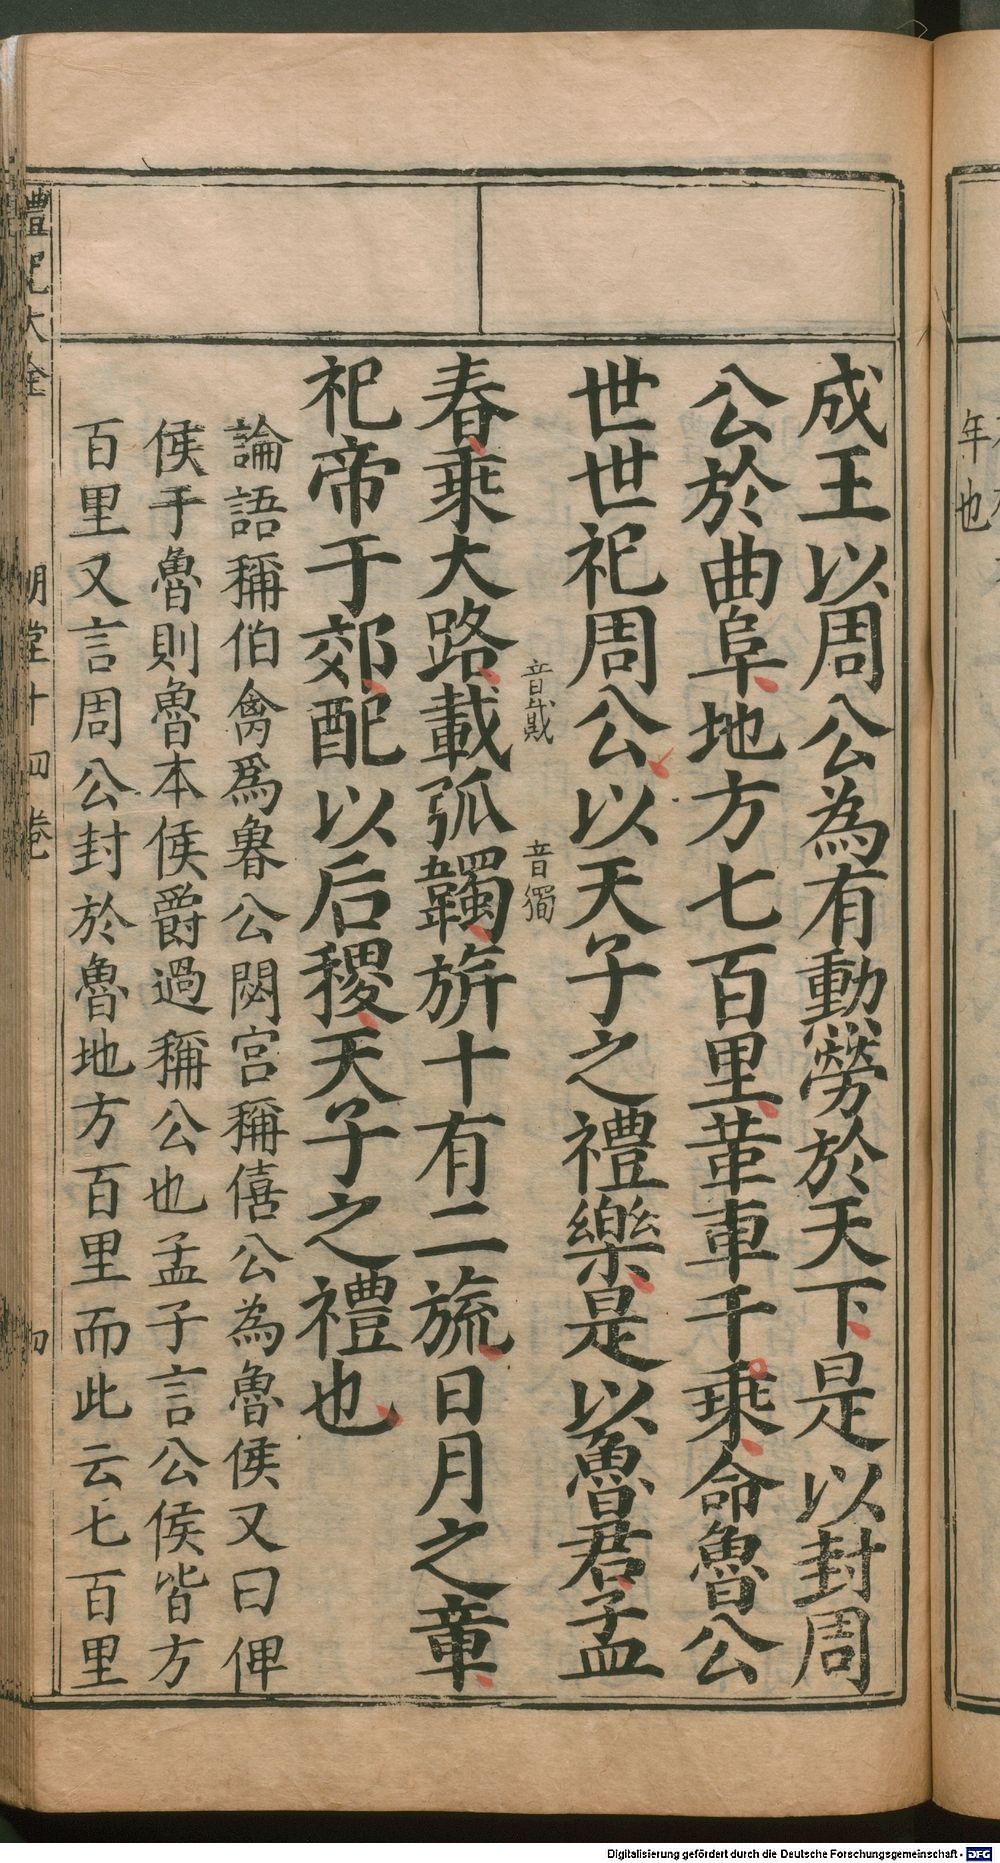 年也
成王以周公為有勳勞於天下是以封周
公於曲阜地方七百里革車千乘命魯公
世世祀周公以天子之禮樂是以魯君孟
音戴 音獨
春乘大路載弧韣旂十有二旒日月之章
祀帝于郊配以后稷天子之禮也
論語稱伯禽爲魯公閟宮稱僖公為魯侯又曰俾
侯于魯則魯本侯爵過稱公也孟子言公侯皆方
百里又言周公封於魯地方百里而此云七百里
禮記大全 明堂十四卷 四
Digitalisierung gefördert durch die Deutsche Forschungsgemeinschaft - DFG